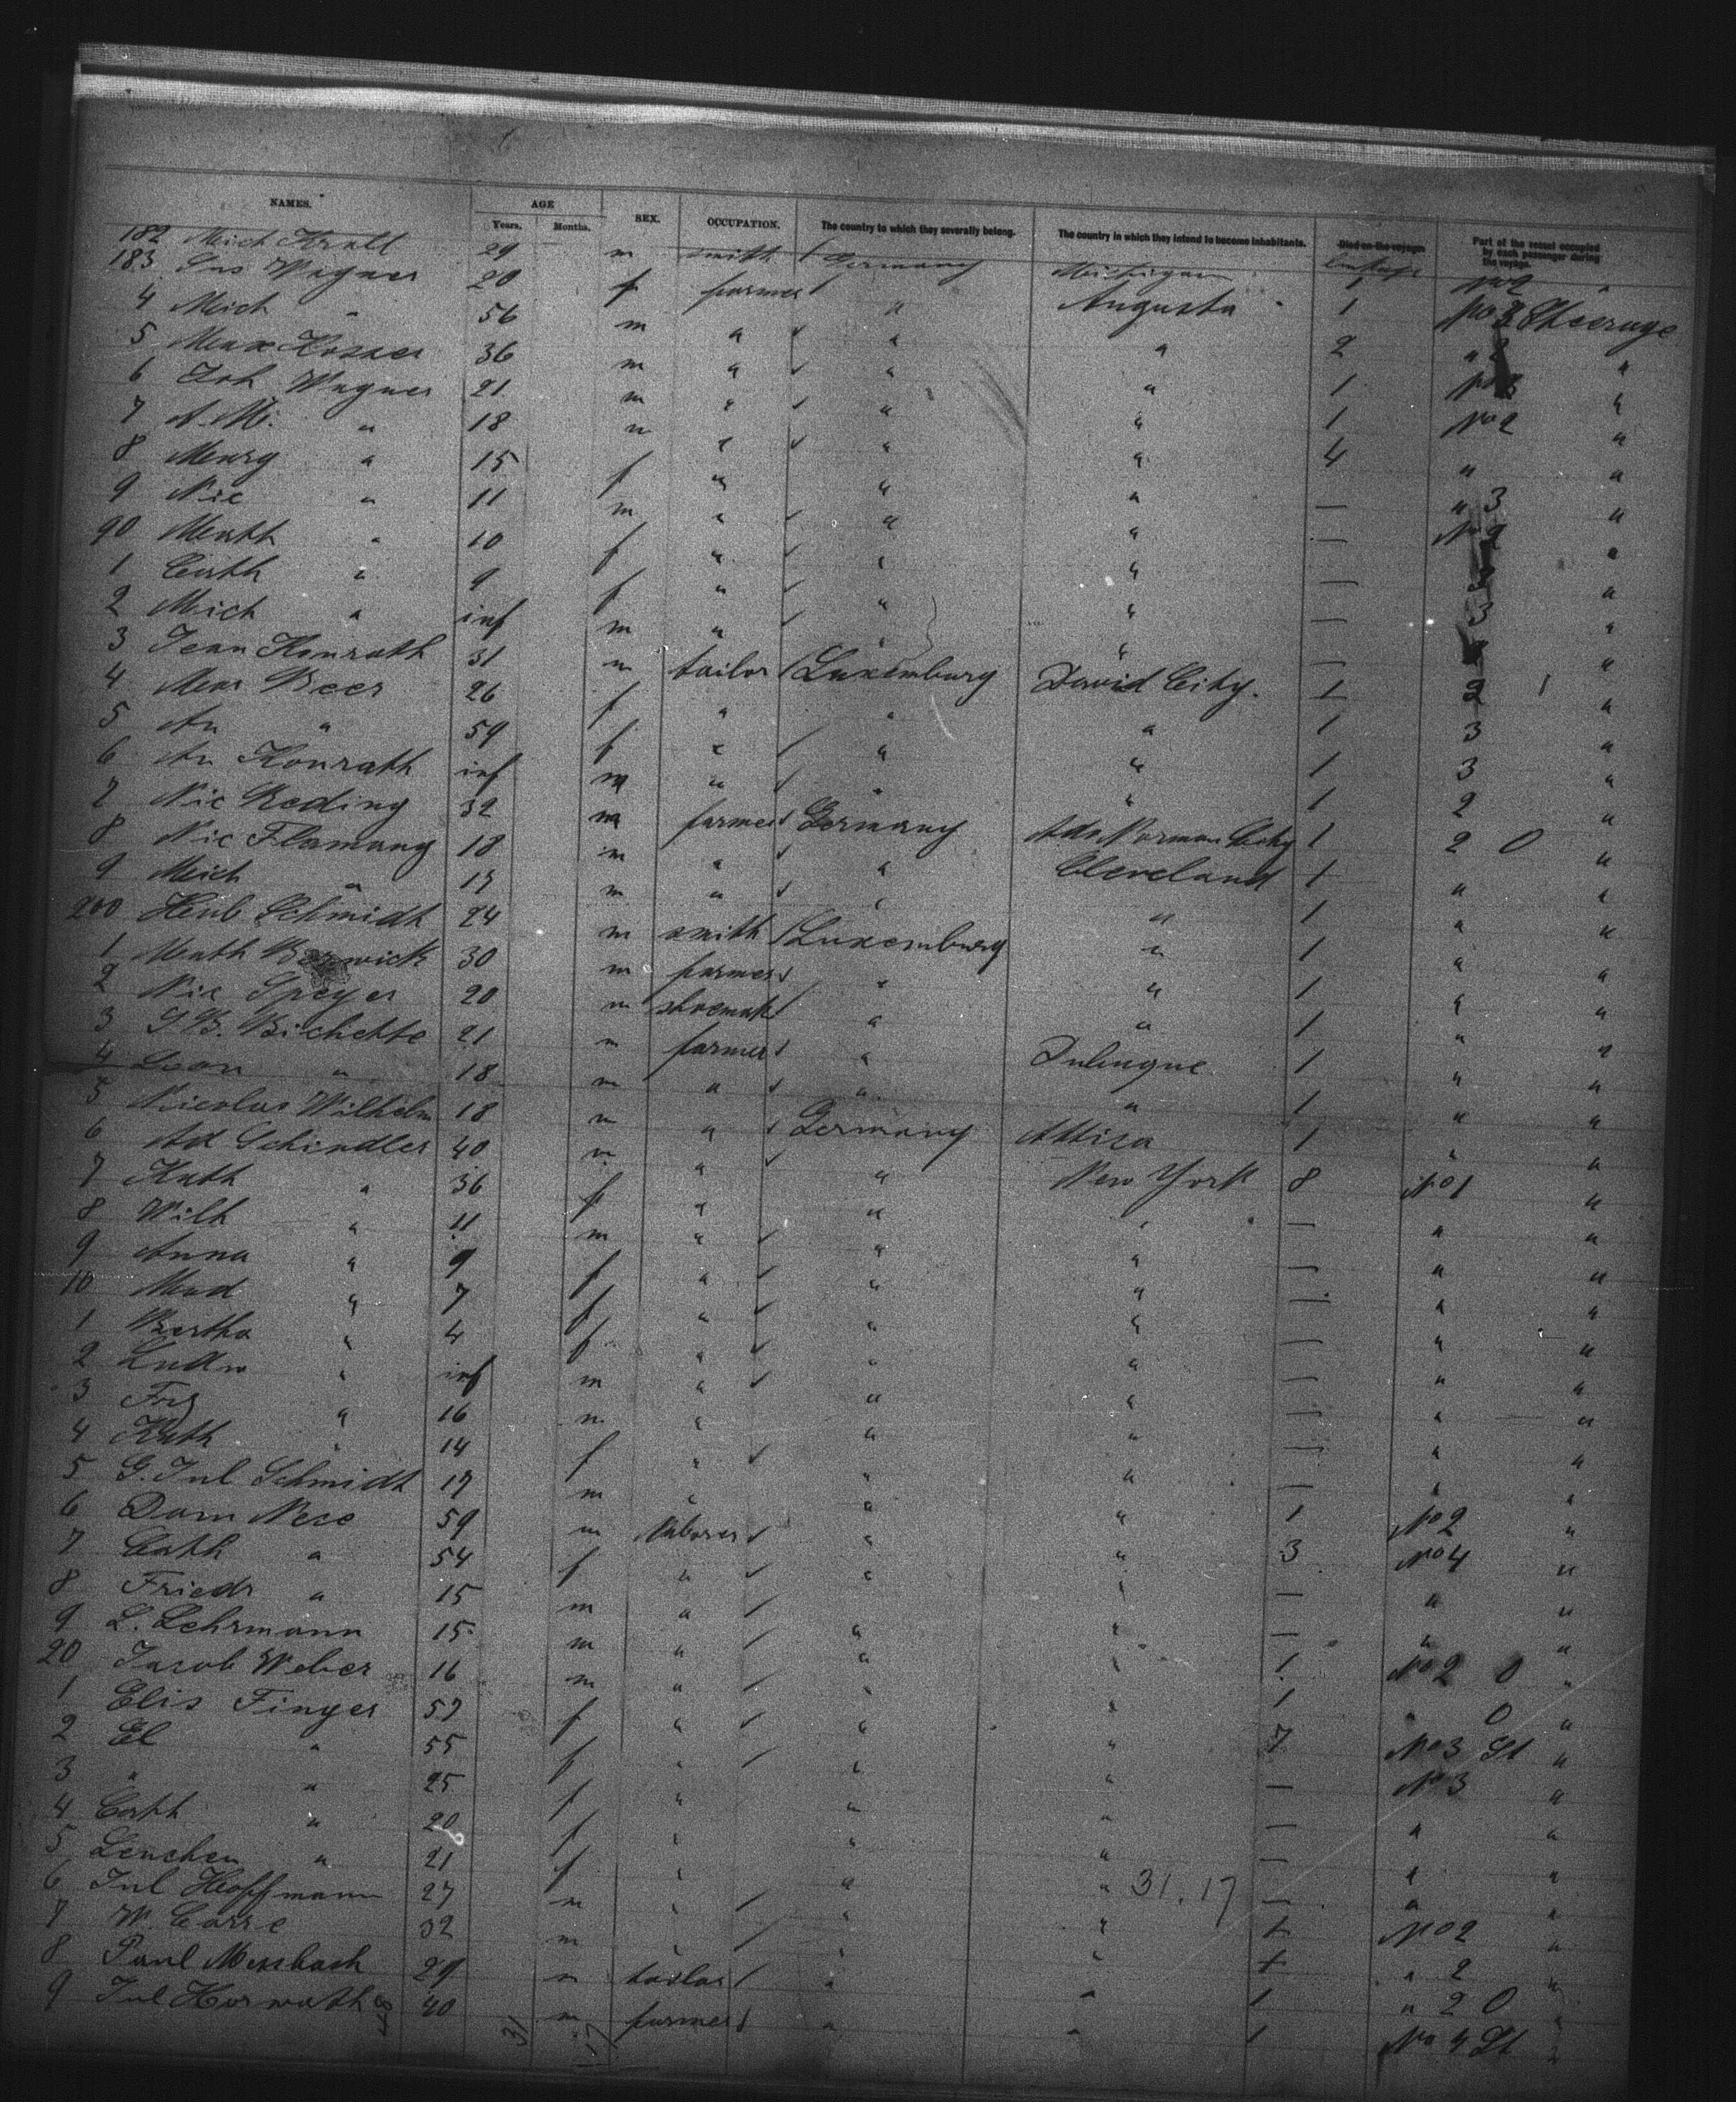 NAMES. AGE Years. Months. SEX. OCCUPATION. The country to which they severally belong. The country in which they intend to become inhabitants. Died on the voyage. Part of the vessel occupied by each passenger during the voyage.
182 Mich Krall 29 m smith Germany Michigan 1 No 2 "
183 Wagner 20 f farmer " Augusta 1 No 3 Steerage
4 Mich " 56 m " " " 2 " 2 "
5 36 m " " " 1 No 3 "
6 Joh Wagner 21 m " " " 1 No 2 "
7 A. M. " 18 " " " 4 " "
8 Marg " 15 f " " " — " 3 "
9 Nic " 11 m " " " — No 2 "
90 Math " 10 f " " " — "
1 Cath " 9 f " " " — 3 "
2 Mich " inf m " " " — "
3 Jean Konrath 31 m tailor Luxemburg David City. 1 2 "
4 Mar Beer 26 f " " " 1 3 "
5 An " 59 f " " " 1 3 "
6 An Konrath inf m " " " 1 2 "
7 Nic Reding 32 m farmer Germany Norman City 1 2 0 "
8 Nic Flamang 18 m " " Cleveland 1 " "
9 Mich " 17 m " " " 1 " "
200 Hub Schmidt 24 m smith Luxemburg " 1 " "
1 Math 30 m farmer " " 1 " "
2 Nic Speyer 20 m shoemak " " 1 " "
3 J B. Bichette 21 m farmer " Dubuque 1 " "
4 Leon " 18 m " " " 1 " "
5 Nicolas Wilhelm 18 m " Germany Attica 1 " "
6 Ad Schindler 40 m " " New York 8 No 1 "
7 Kath " 36 f " " " — " "
8 Wilh " 11 m " " " — " "
9 Anna " 9 f " " " — " "
10 Mad " 7 f " " " — " "
1 Bertha " 4 f " " " — " "
2 Ludw " inf m " " " — " "
3 " 16 m " " " — " "
4 Kath " 14 f " " " — " "
5 G. Jul Schmidt 17 m " " " 1 No 2 "
6 59 m laborer " " 3 No 4 "
7 Cath " 54 f " " " — " "
8 Friedr " 15 m " " " — " "
9 L. Lehrmann 15 m " " " 1 No 2 0 "
20 Jacob Weber 16 m " " " 1 " 0 "
1 Elis Finger 57 f " " " 7 No 3 St "
2 El " 55 f " " " — No 3 "
3 " " 25 f " " " — " "
4 Cath " 20 f " " " — " "
5 Lenchen " 21 f " " " 31.17 — " "
6 Jul Hoffmann 27 m " " " 1 No 2 "
7 W. Carre 32 m " " " 1 " 2 "
8 Paul 29 m tailor " " 1 " 2 0 "
9 Jul Horwath 40 m farmer " " 1 No 4 St "
31 17